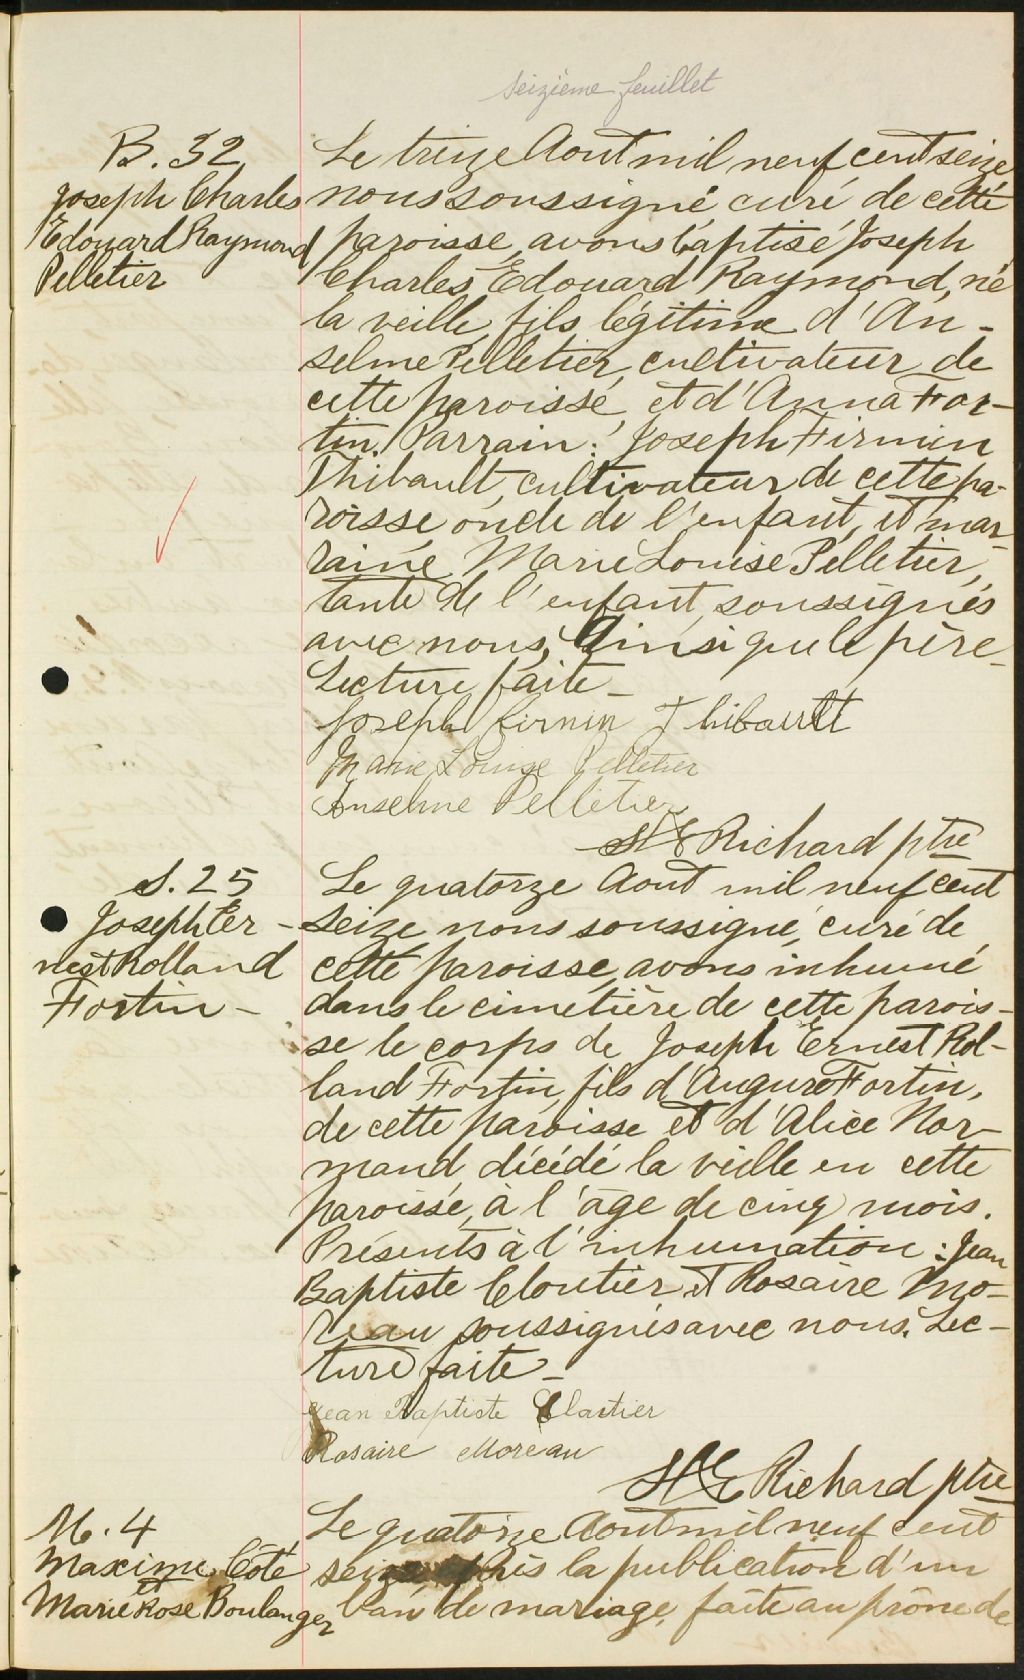 seizième feuillet
B. 32
Joseph Charles
Edouard Raymond
Pelletier
Le treize Aout mil neuf cent seize
nous soussigné, curé de cette
paroisse, avons baptisé Joseph
Charles Edouard Raymond, né
la veille, fils légitime d'An-
selme Pelletier, cultivateur de
cette paroisse, et d'Anna For-
tin. Parrain: Joseph Firmin
Thibault, cultivateur de cette pa-
roisse oncle de l'enfant, et mar-
raine Marie Louise Pelletier,
tante de l'enfant, soussignés
avec nous, Ainsi que le père_
Lecture faite_
Joseph Firmin Thibault
Marie Louise Pelletier
Anselme Pelletier
Richard ptre
S. 25
Joseph Er-
nest Rolland
Fortin_
Le quatorze Aout mil neuf cent
seize nous soussigné, curé de
cette paroisse, avons inhumé
dans le cimetière de cette parois-
se le corps de Joseph Ernest Rol-
land Fortin, fils d' Fortin,
de cette paroisse et d'Alice Nor-
mand, décédé la veille en cette
paroisse, à l'âge de cinq mois.
Présents à l'inhumation: Jean
Baptiste Cloutier et Rosaire Mo-
reau soussignés avec nous. Lec-
ture faite_
Jean Baptiste
Rosaire Moreau
Richard ptre
M. 4
Maxime Côté
et
Marie Rose Boulanger
Le quatorze Aout mil neuf cent
seize après la publication d'un
ban de mariage, faite au prône de